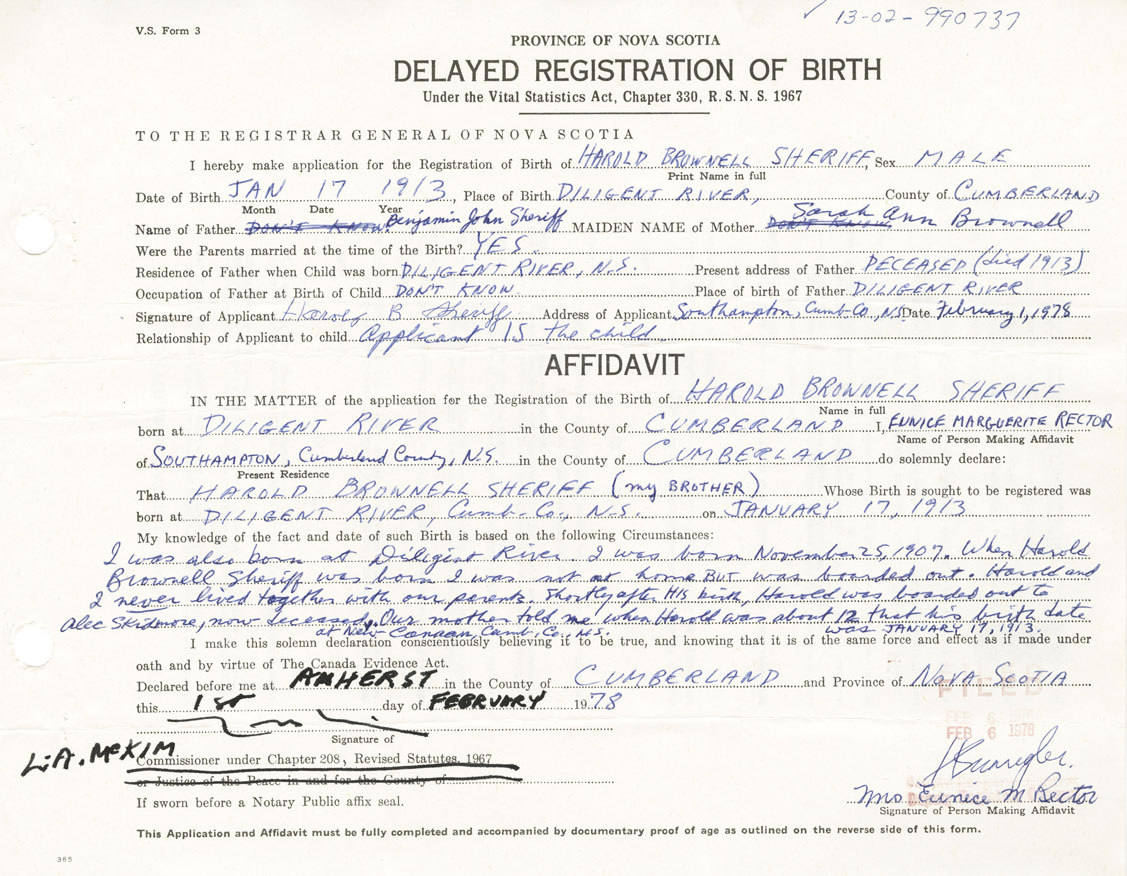 ✓ 13-02-990737
V.S. Form 3
PROVINCE OF NOVA SCOTIA
DELAYED REGISTRATION OF BIRTH
Under the Vital Statistics Act, Chapter 330, R. S. N. S. 1967
TO THE REGISTRAR GENERAL OF NOVA SCOTIA
I hereby make application for the Registration of Birth of HAROLD BROWNELL SHERIFF, Sex MALE
Print Name in full
Date of Birth JAN 17 1913, Place of Birth DILIGENT RIVER, County of CUMBERLAND
Month Date Year
Name of Father DON'T KNOW Benjamin John Sheriff MAIDEN NAME of Mother DON'T KNOW Sarah Ann Brownell
Were the Parents married at the time of the Birth? YES
Residence of Father when Child was born DILIGENT RIVER, N.S. Present address of Father DECEASED (died 1913)
Occupation of Father at Birth of Child DON'T KNOW Place of birth of Father DILIGENT RIVER
Signature of Applicant Harold B Sheriff Address of Applicant Southampton, Cumb. Co., N.S. Date February 1, 1978
Relationship of Applicant to child Applicant IS the child
AFFIDAVIT
IN THE MATTER of the application for the Registration of the Birth of HAROLD BROWNELL SHERIFF
Name in full
born at DILIGENT RIVER in the County of CUMBERLAND I, EUNICE MARGUERITE RECTOR
Name of Person Making Affidavit
of SOUTHAMPTON, Cumberland County, N.S. in the County of CUMBERLAND do solemnly declare:
Present Residence
That HAROLD BROWNELL SHERIFF (my BROTHER) Whose Birth is sought to be registered was
born at DILIGENT RIVER, Cumb. Co., N.S. on JANUARY 17, 1913
My knowledge of the fact and date of such Birth is based on the following Circumstances:
I was also born at Diligent River I was born November 25, 1907. When Harold
Brownell Sheriff was born I was not at home BUT was boarded out. Harold and
I never lived together with our parents. Shortly after HIS birth, Harold was boarded out to
Alec Skidmore, now deceased, Our mother told me when Harold was about 12 that his birth date
at New Canaan, Cumb. Co., N.S. was JANUARY 17, 1913.
I make this solemn declaration conscientiously believing it to be true, and knowing that it is of the same force and effect as if made under
oath and by virtue of The Canada Evidence Act.
Declared before me at AMHERST in the County of CUMBERLAND and Province of NOVA SCOTIA
FILED
this 1st day of FEBRUARY 1978
FEB 6 1978
FEB 6 1978
Signature of
L.A. McKIM
Commissioner under Chapter 208, Revised Statutes, 1967
or Justice of the Peace in and for the County of
If sworn before a Notary Public affix seal.
Mrs Eunice M Rector
Signature of Person Making Affidavit
This Application and Affidavit must be fully completed and accompanied by documentary proof of age as outlined on the reverse side of this form.
385